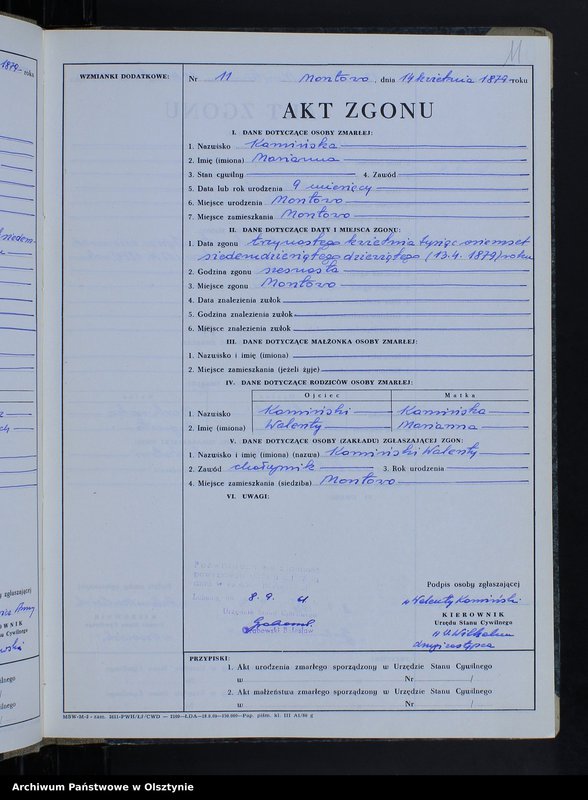 1879 roku
11
WZMIANKI DODATKOWE:
Nr 11 Montowo, dnia 14 kwietnia 1879 roku
AKT ZGONU
I. DANE DOTYCZĄCE OSOBY ZMARŁEJ:
1. Nazwisko Kamińska
2. Imię (imiona) Marianna
3. Stan cywilny 4. Zawód
5. Data lub rok urodzenia 9 miesięcy
6. Miejsce urodzenia Montowo
7. Miejsce zamieszkania Montowo
II. DANE DOTYCZĄCE DATY I MIEJSCA ZGONU:
1. Data zgonu trzynastego kwietnia tysiąc osiemset
siedemdziesiątego dziewiątego (13.4. 1879) roku
2. Godzina zgonu szesnasta
3. Miejsce zgonu Montowo
4. Data znalezienia zwłok
5. Godzina znalezienia zwłok
6. Miejsce znalezienia zwłok
III. DANE DOTYCZĄCE MAŁŻONKA OSOBY ZMARŁEJ:
1. Nazwisko i imię (imiona)
2. Miejsce zamieszkania (jeżeli żyje)
IV. DANE DOTYCZĄCE RODZICÓW OSOBY ZMARŁEJ:
Ojciec Matka
1. Nazwisko Kamiński Kamińska
2. Imię (imiona) Walenty Marianna
V. DANE DOTYCZĄCE OSOBY (ZAKŁADU) ZGŁASZAJĄCEJ ZGON:
1. Nazwisko i imię (imiona) (nazwa) Kamiński Walenty
2. Zawód chałupnik 3. Rok urodzenia
4. Miejsce zamieszkania (siedziba) Montowo
VI. UWAGI:
8. 9. 61
Grabowski B
Podpis osoby zgłaszającej
Walenty Kamiński
KIEROWNIK
Urzędu Stanu Cywilnego
PRZYPISKI:
1. Akt urodzenia zmarłego sporządzony w Urzędzie Stanu Cywilnego
w Nr /
2. Akt małżeństwa zmarłego sporządzony w Urzędzie Stanu Cywilnego
w Nr /
Archiwum Państwowe w Olsztynie